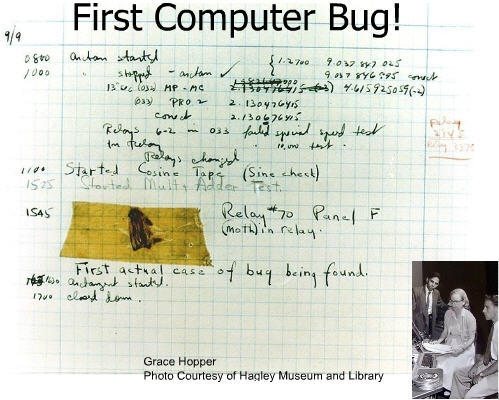 First Computer Bug!
9/9
0800 Antan started
1000 " stopped - antan ✓ { 1.2700 9.037 847 025
9.037 846 995 correct
13"uc (032) MP - MC 2.130476415 4.615925059(-2)
(033) PRO 2 2.130476415
correct 2.130676415
Relays 6-2 in 033 failed special speed test
in relay " 10.000 test .
Relays changed
Relay
1100 Started Cosine Tape (Sine check)
1525 Started Mult + Adder Test.
1545 Relay #70 Panel F
(moth) in relay.
First actual case of bug being found.
antangent started.
1700 closed down.
Grace Hopper
Photo Courtesy of Hagley Museum and Library